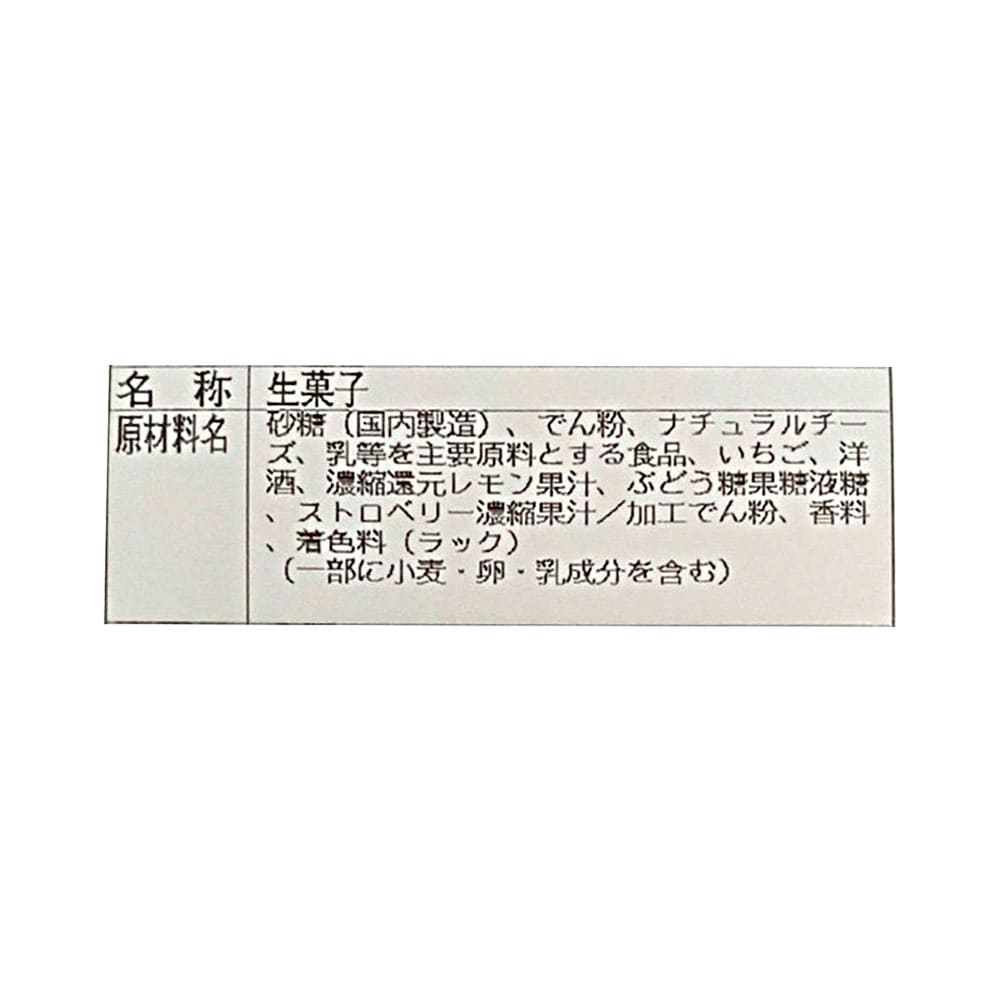 名 称 生菓子
原材料名 砂糖（国内製造）、でん粉、ナチュラルチー
ズ、乳等を主要原料とする食品、いちご、洋
酒、濃縮還元レモン果汁、ぶどう糖果糖液糖
、ストロベリー濃縮果汁／加工でん粉、香料
、着色料（ラック）
（一部に小麦・卵・乳成分を含む）